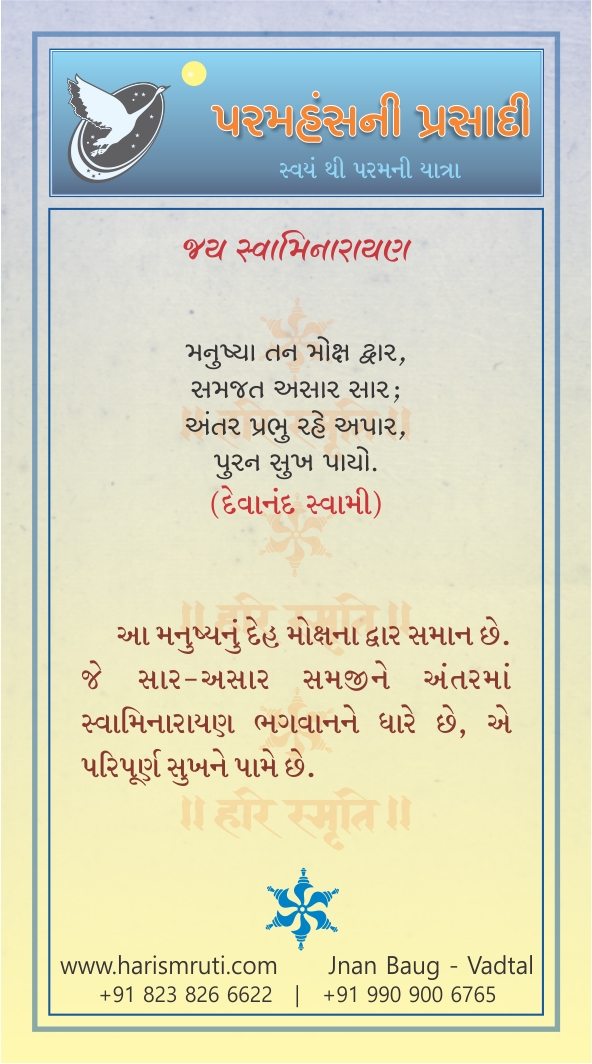 પરમહંસની પ્રસાદી
સ્વયં થી પરમની યાત્રા
જય સ્વામિનારાયણ
મનુષ્યા તન મોક્ષ દ્વાર,
સમજત અસાર સાર;
અંતર પ્રભુ રહે અપાર,
પુરન સુખ પાયો.
(દેવાનંદ સ્વામી)
॥ हरि स्मृति ॥
આ મનુષ્યનું દેહ મોક્ષના દ્વાર સમાન છે.
જે સાર-અસાર સમજીને અંતરમાં
સ્વામિનારાયણ ભગવાનને ધારે છે, એ
પરિપૂર્ણ સુખને પામે છે.
॥ हरि स्मृति ॥
www.harismruti.com Jnan Baug - Vadtal
+91 823 826 6622 | +91 990 900 6765